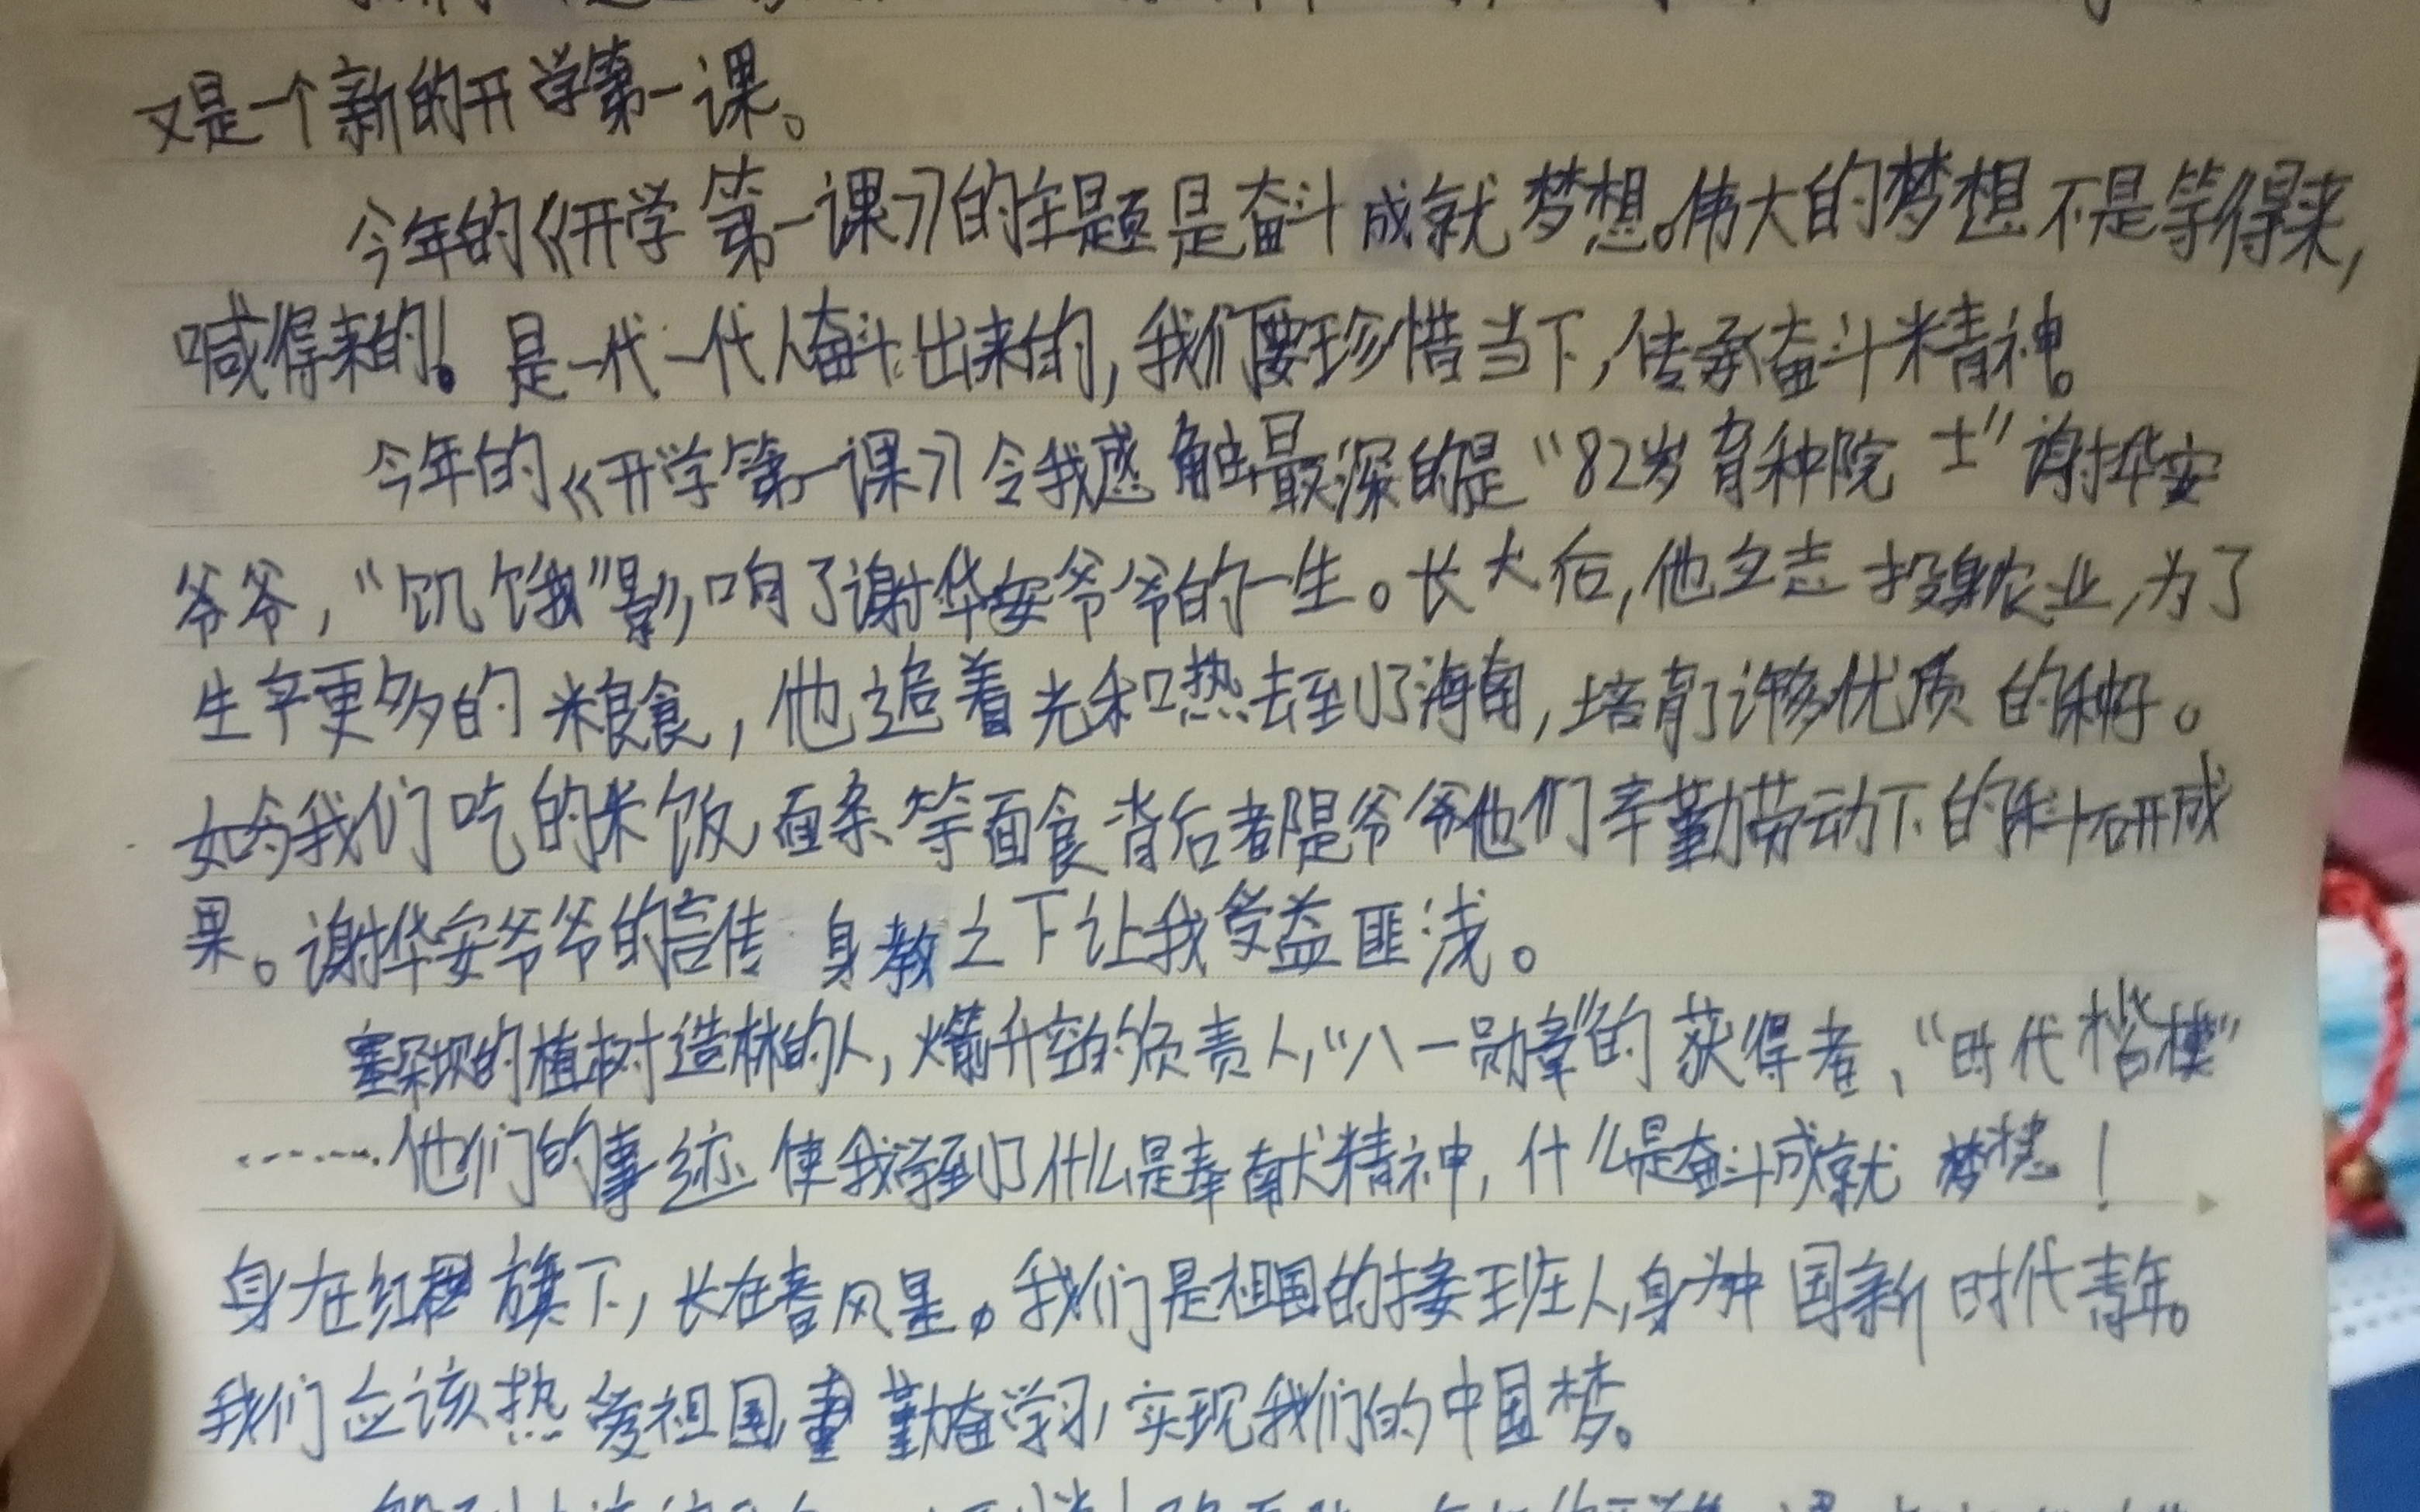 又是一个新的开学第一课。
今年的《开学第一课》的主题是奋斗成就梦想。伟大的梦想不是等得来,
喊得来的!是一代一代人奋斗出来的,我们要珍惜当下,传承奋斗精神。
今年的《开学第一课》令我感触最深的是“82岁育种院士”谢华安
爷爷,“饥饿”影响了谢华安爷爷的一生。长大后,他立志投身农业,为了
生产更多的粮食,他追着光和热去到了海南,培育了许多优质的种子。
如今我们吃的米饭,面条等面食背后都是爷爷他们辛勤劳动下的科研成
果。谢华安爷爷的言传身教之下让我受益匪浅。
塞罕坝的植树造林的人,火箭升空的负责人,“八一勋章”的获得者、“时代楷模”
……他们的事迹使我学到了什么是奉献精神,什么是奋斗成就梦想!
身在红旗下,长在春风里。我们是祖国的接班人,身为中国新时代青年。
我们应该热爱祖国,勤奋学习,实现我们的中国梦。